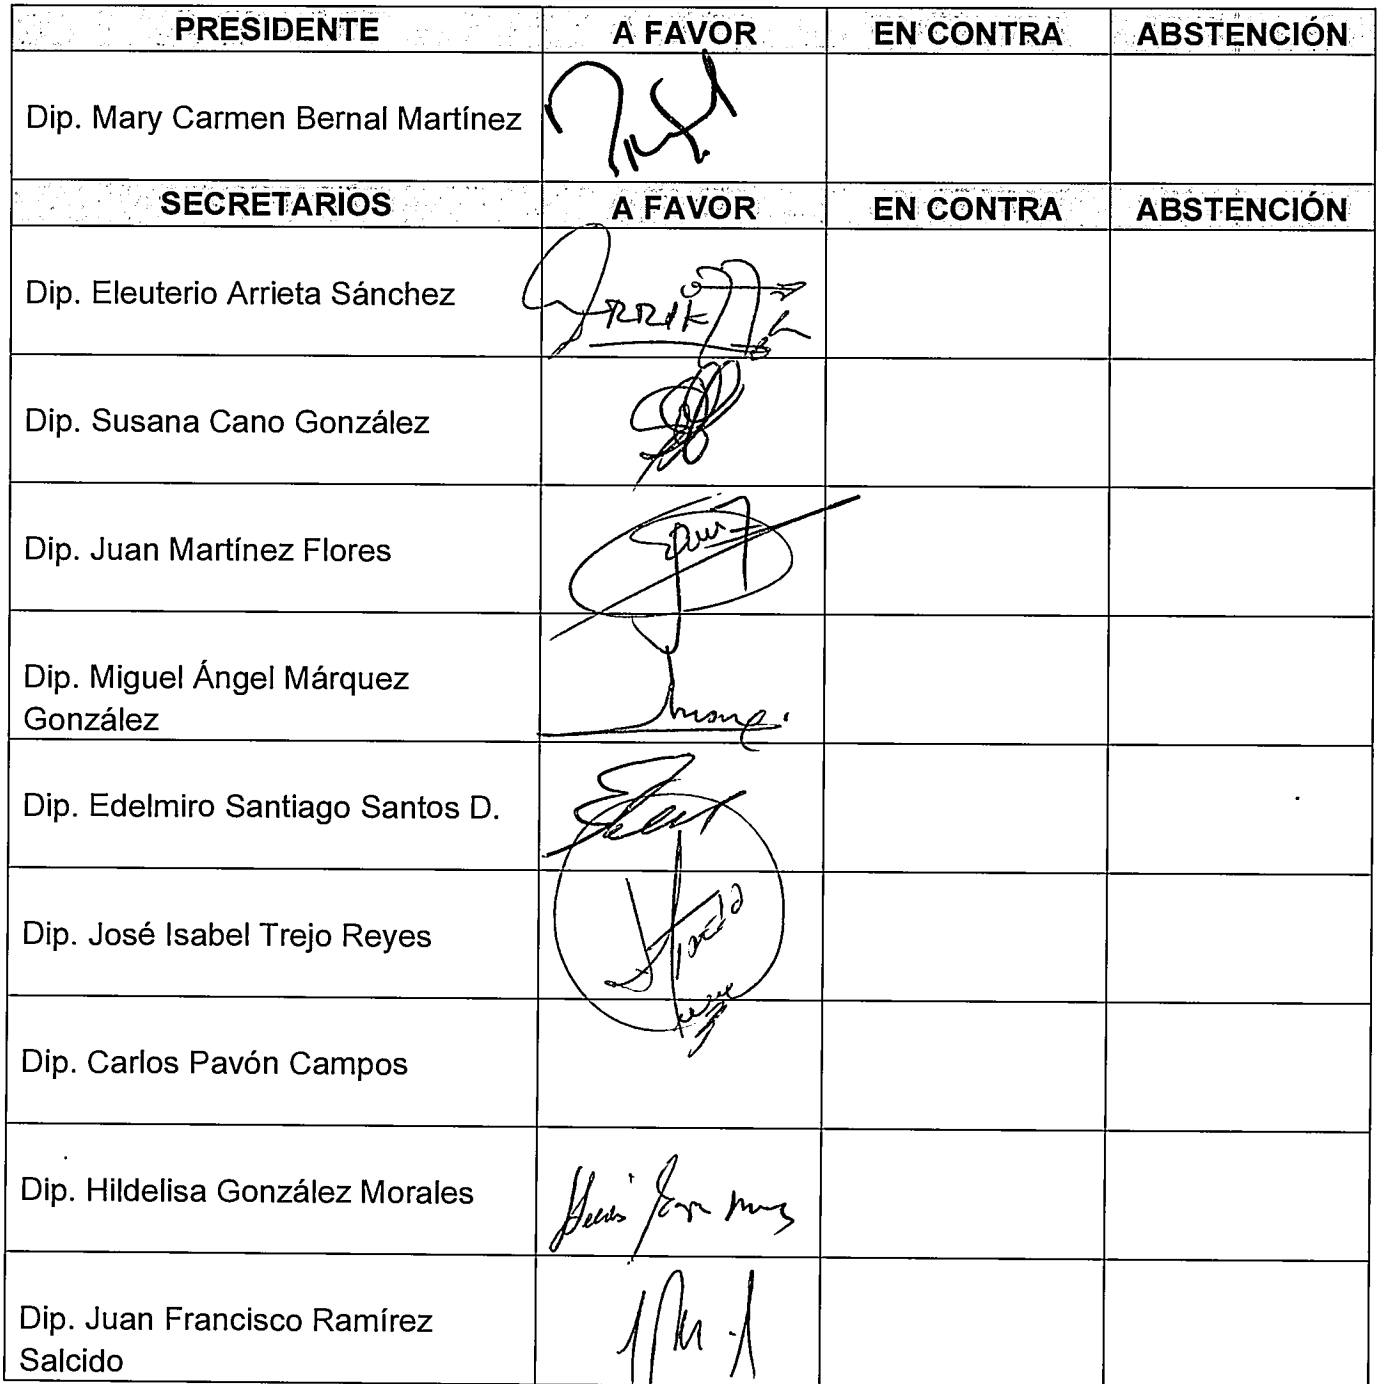 PRESIDENTE A FAVOR EN CONTRA ABSTENCIÓN
Dip. Mary Carmen Bernal Martínez
SECRETARIOS A FAVOR EN CONTRA ABSTENCIÓN
Dip. Eleuterio Arrieta Sánchez
Dip. Susana Cano González
Dip. Juan Martínez Flores
Dip. Miguel Ángel Márquez
González
Dip. Edelmiro Santiago Santos D.
Dip. José Isabel Trejo Reyes
Dip. Carlos Pavón Campos
Dip. Hildelisa González Morales
Dip. Juan Francisco Ramírez
Salcido